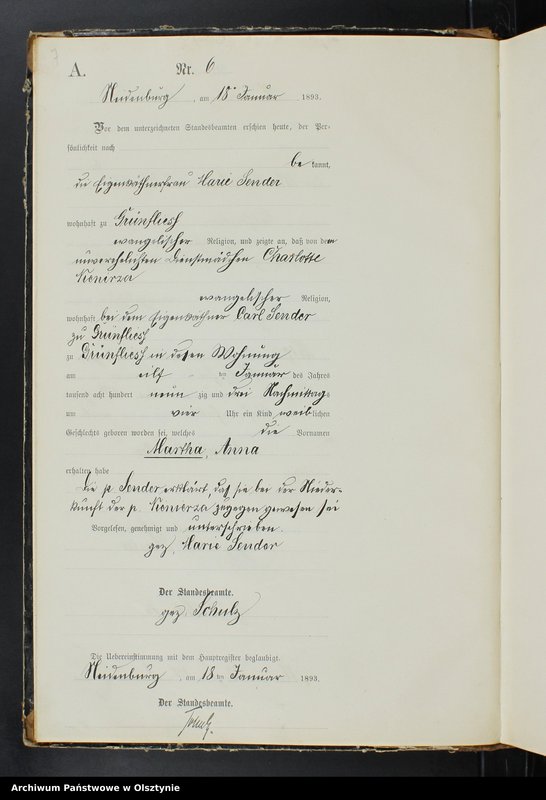 7
A. Nr. 6
Neidenburg, am 18ten Januar 1893.
Vor dem unterzeichneten Standesbeamten erschien heute, der Per-
sönlichkeit nach
be kannt,
die Eigenkäthnerfrau Marie Sender
wohnhaft zu Grünfliess
evangelischer Religion, und zeigte an, daß von der
unverehelichten Dienstmädchen Charlotte
evangelischer Religion,
wohnhaft bei dem Eigenkäthner Carl Sender
zu Grünfliess
zu Grünfliess in dessen Wohnung
am eilf ten Januar des Jahres
tausend acht hundert neun zig und drei Nachmittags
um vier Uhr ein Kind weiblichen
Geschlechts geboren worden sei, welches die Vornamen
Martha, Anna
erhalten habe
Die p. Sender erklärt, daß sie bei der Nieder-
kunft der p. zugegen gewesen sei
Vorgelesen, genehmigt und unterschrieben.
gez. Marie Sender
Der Standesbeamte.
gez. Schulz
Die Uebereinstimmung mit dem Hauptregister beglaubigt.
Neidenburg, am 18 ten Januar 1893.
Der Standesbeamte.
Schulz.
Archiwum Państwowe w Olsztynie